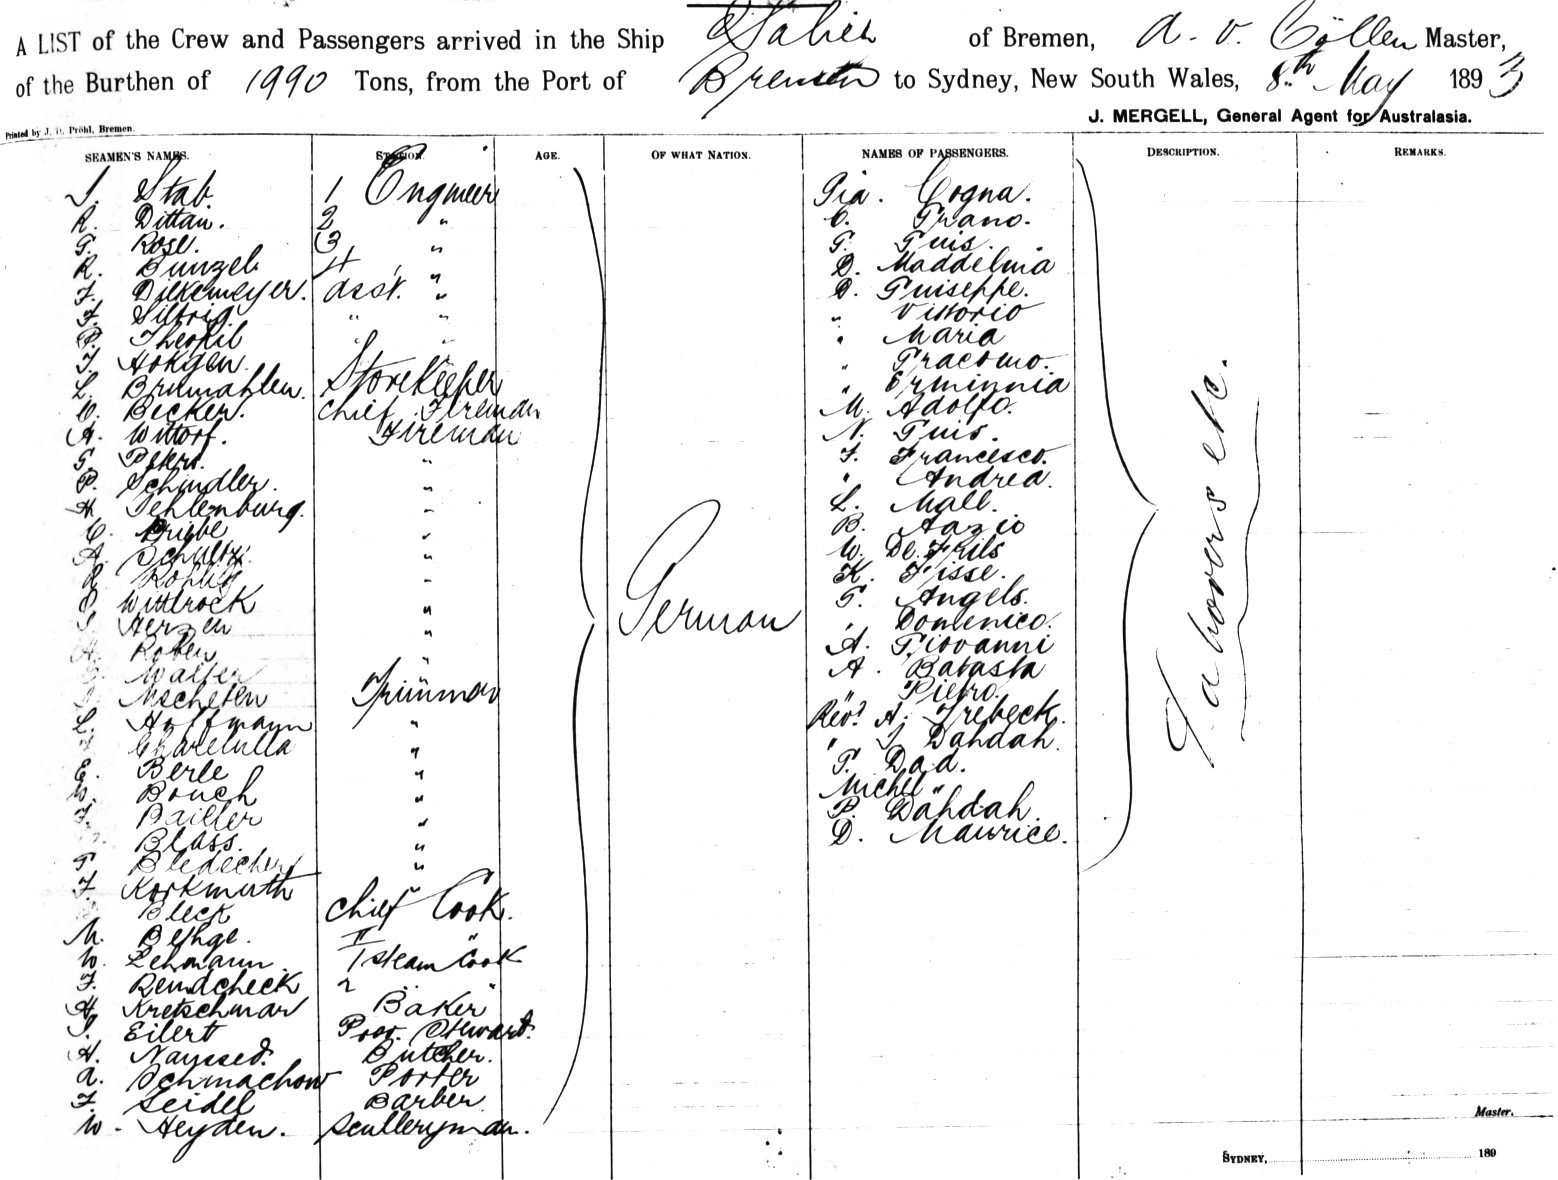 A LIST of the Crew and Passengers arrived in the Ship Salier of Bremen, A. v. Cöllen Master,
of the Burthen of 1990 Tons, from the Port of Bremen to Sydney, New South Wales, 8th May 1893
J. MERGELL, General Agent for Australasia.
Printed by J. H. Pröhl, Bremen.
SEAMEN'S NAMES. STATION. AGE. OF WHAT NATION. NAMES OF PASSENGERS. DESCRIPTION. REMARKS.
J. Stab. 1 Engineer
R. Dittau. 2 "
G. Rose. 3 "
R. Bunzel. 4 "
F. Diekemeyer. asst. "
F. " "
P. Theofil " "
J. Hokgen " "
L. Storekeeper
C. Becker. chief Fireman
A. Wittorf. Fireman
G. Peters. "
P. Schindler. "
H. Tehlenburg. "
C. Briebe "
A. Schultz. "
R. "
Wittrock "
Herzen "
Roben "
Walter "
Mscheten Trimmer
L. Hoffmann "
"
E. Berle "
W. Bouch "
F. Bailler "
Blass. "
G. "
F. Korkmuth "
Bleck chief Cook.
M. Bethge. II "
W. Lehmann I steam Cook
F. Rendcheck 2 " "
H. Kretschmar Baker
J. Eilert Prov. Stewart.
H. Nayssed. Butcher.
A. Schmachow Porter
F. Seidel Barber
W. Heyden. Sculleryman.
German
Pia. Cogna.
C. Grano.
G. Guis.
D. Maddelina
D. Guiseppe.
" Vittorio
" Maria
" Gracomo.
" Erminnia
M. Adolfo.
N. Guis.
F. Francesco.
" Andrea.
L. Mall.
B. Aazio
W. De. Frils
K. Fisse.
G. Angels.
" Domenico.
A. Giovanni
A. Batasta
" Pietro.
Revd. A. Trebeck.
" J. Dahdah.
G. Dad.
Michel "
P. Dahdah.
D. Maurice.
Labourers etc.
Master.
SYDNEY, 189